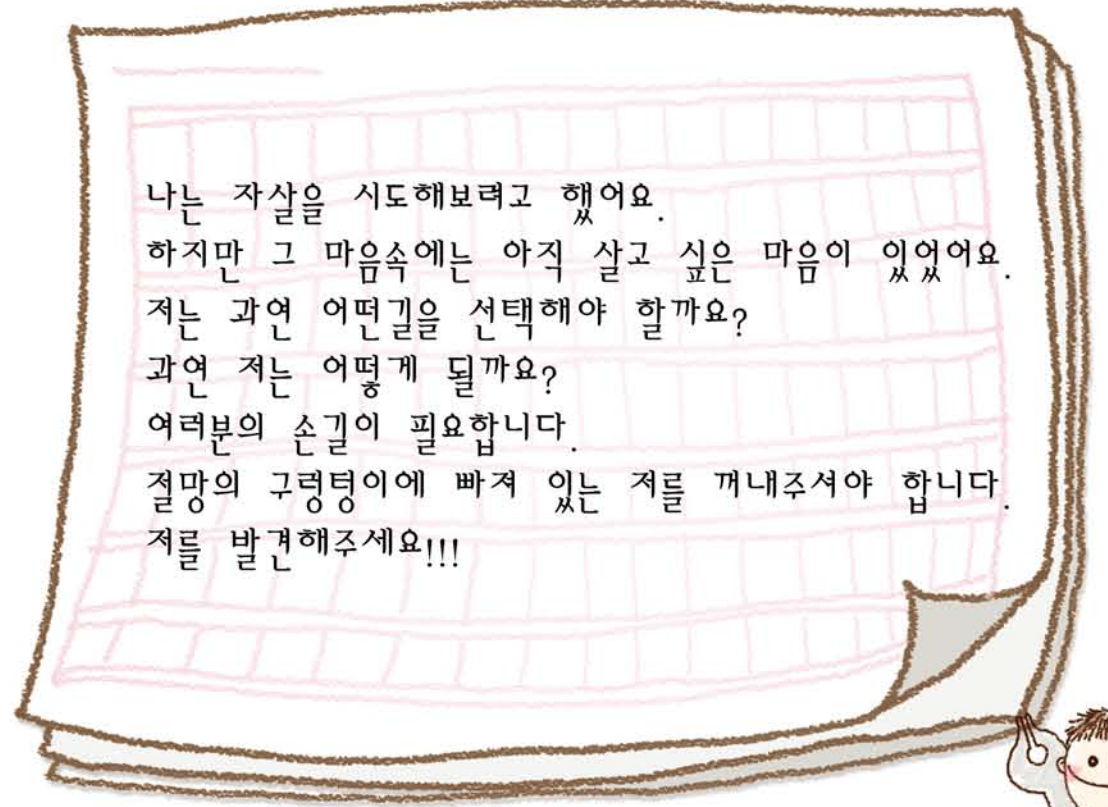 나는 자살을 시도해보려고 했어요.
하지만 그 마음속에는 아직 살고 싶은 마음이 있었어요.
저는 과연 어떤길을 선택해야 할까요?
과연 저는 어떻게 될까요?
여러분의 손길이 필요합니다.
절망의 구렁텅이에 빠져 있는 저를 꺼내주셔야 합니다.
저를 발견해주세요!!!